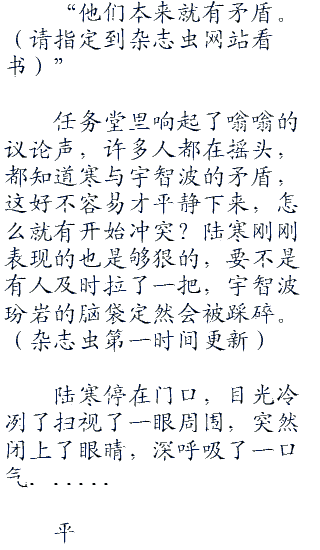 “他们本来就有矛盾。
（请指定到杂志虫网站看
书）”
任务堂里响起了嗡嗡的
议论声，许多人都在摇头，
都知道寒与宇智波的矛盾，
这好不容易才平静下来，怎
么就有开始冲突？陆寒刚刚
表现的也是够狠的，要不是
有人及时拉了一把，宇智波
玢岩的脑袋定然会被踩碎。
（杂志虫第一时间更新）
陆寒停在门口，目光冷
冽了扫视了一眼周围，突然
闭上了眼睛，深呼吸了一口
气．．．．．．
平